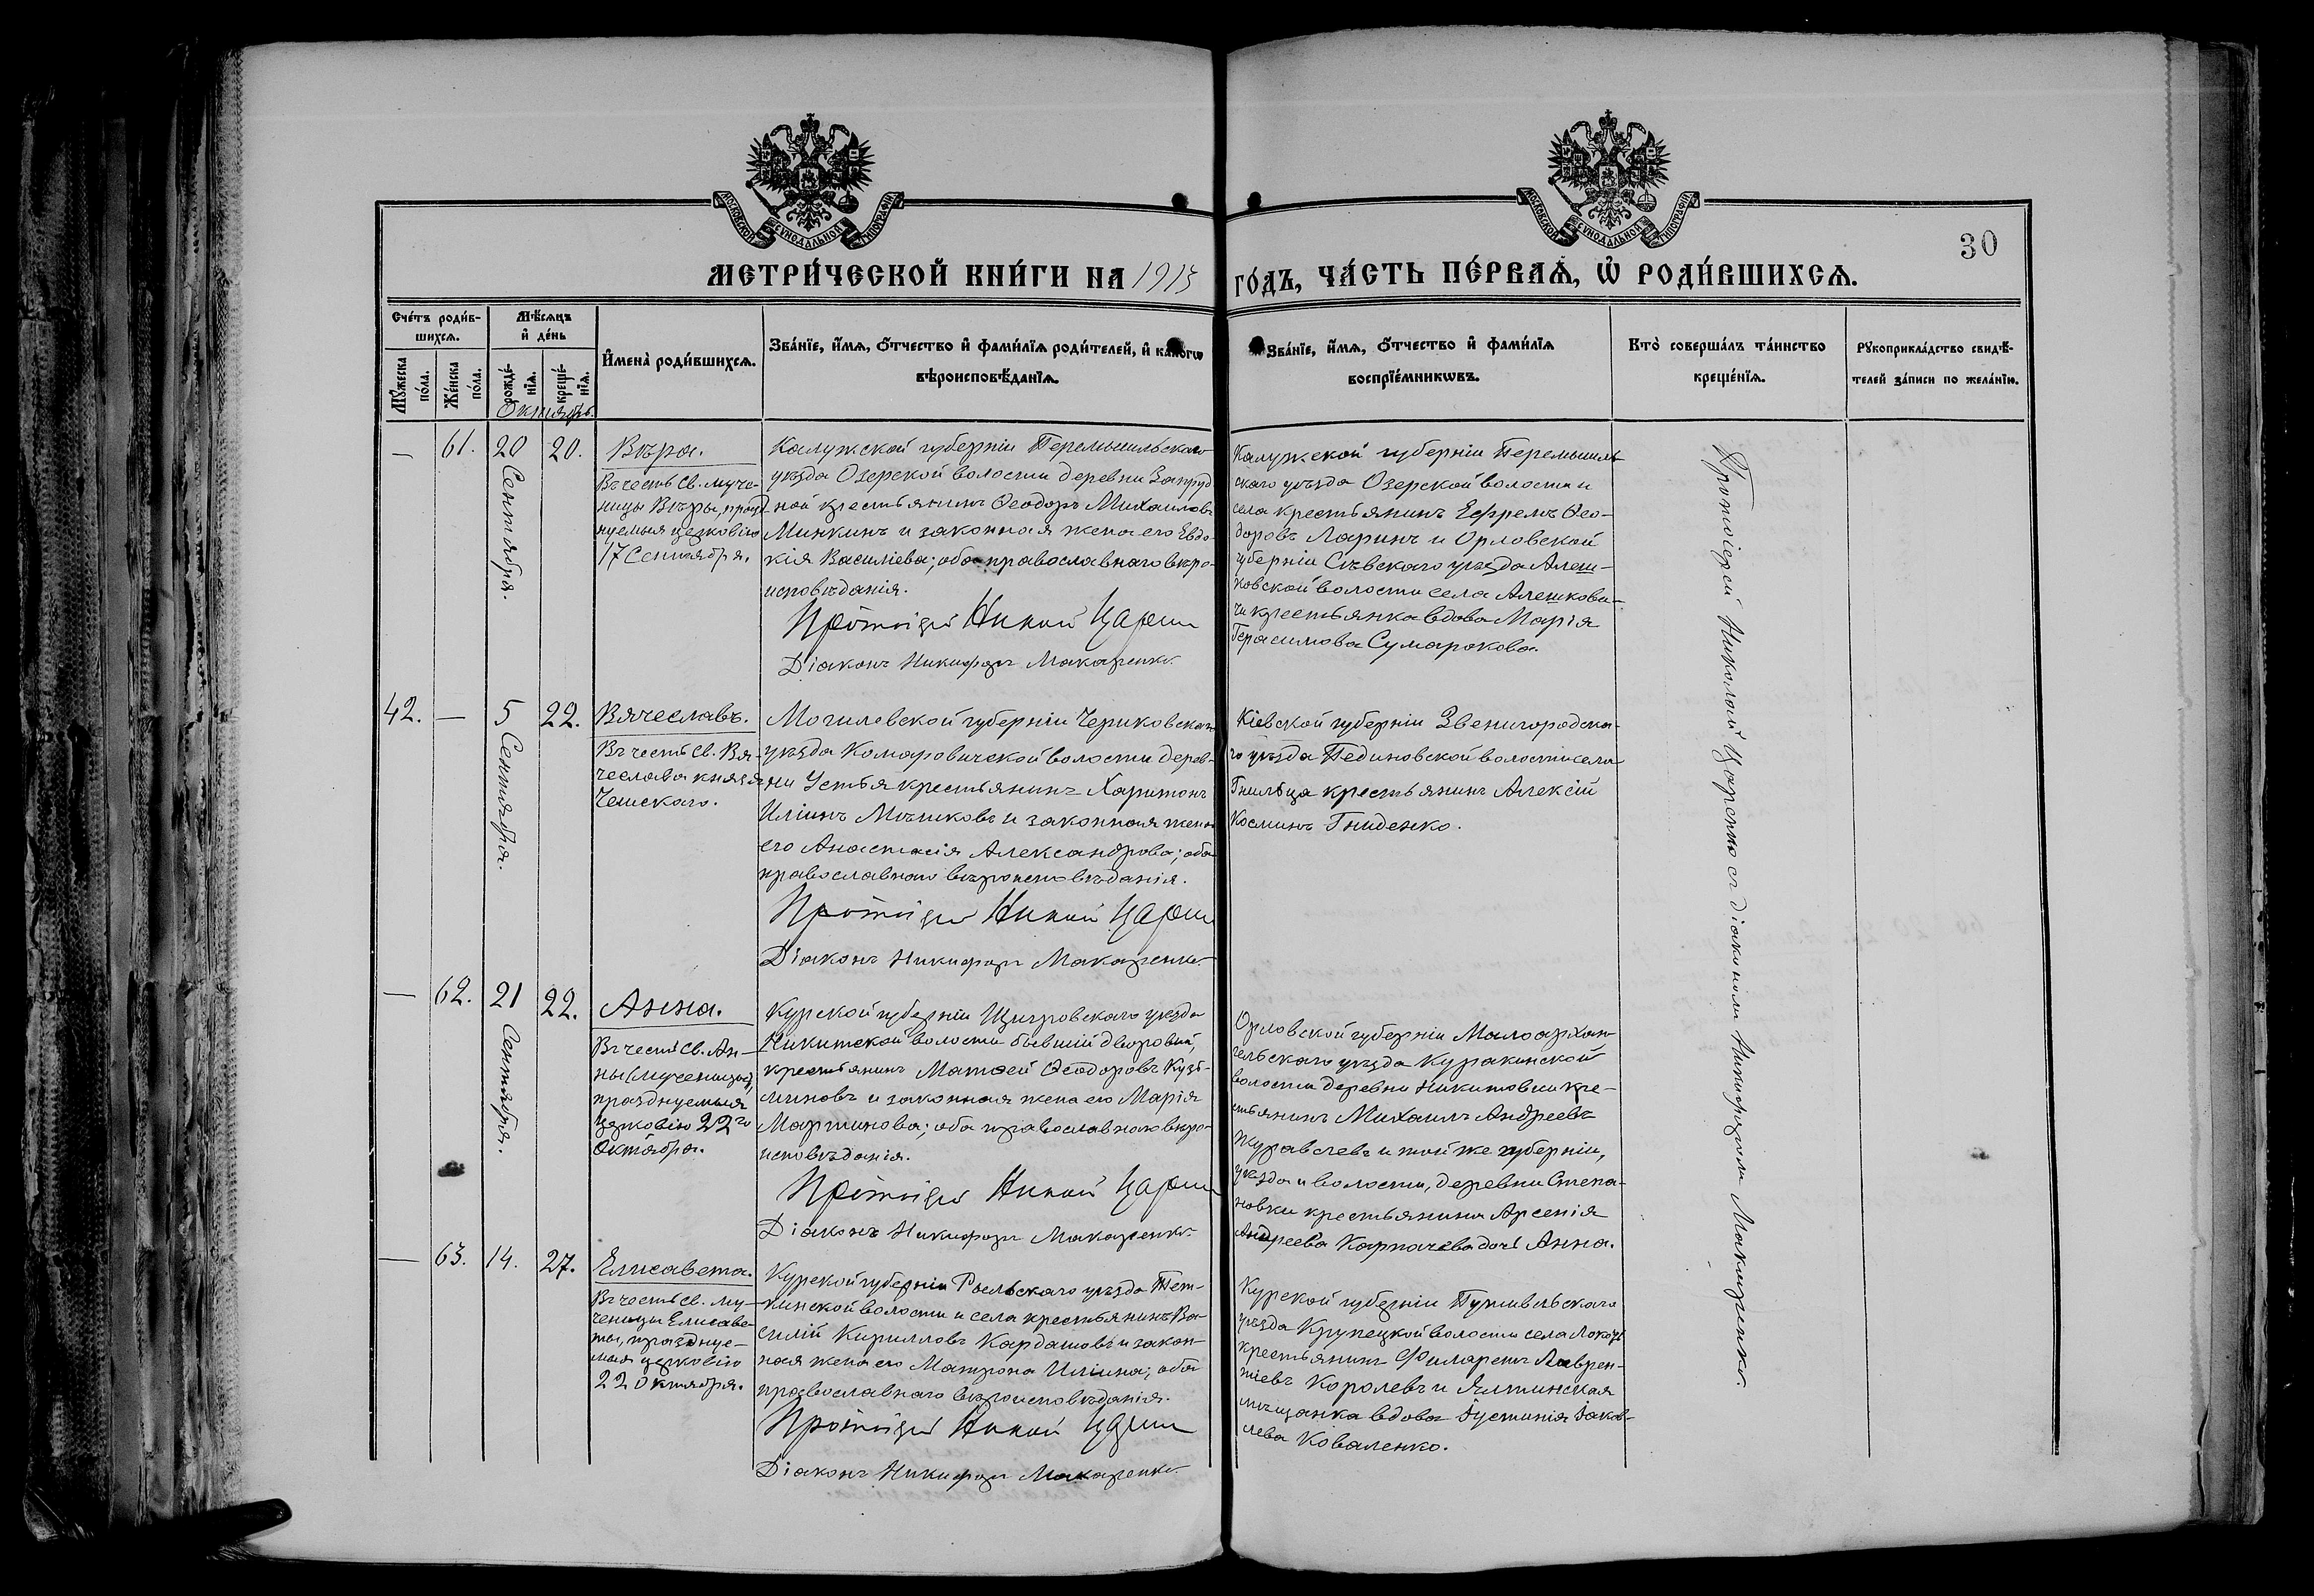 МОСКОВСКОЙ СѴНОДАЛЬНОЙ ТИПОГРАФІИ
МОСКОВСКОЙ СѴНОДАЛЬНОЙ ТИПОГРАФІИ
30
МЕТРИ́ЧЕСКОЙ КНИ́ГИ НА 1913 ГО́ДЪ, ЧА́СТЬ ПЕ́РВАѦ, Ѡ҆ РОДИ́ВШИХСѦ.
Сче́тъ роди́в-
шихсѧ.
Мꙋ́жеска по́ла.
Же́нска по́ла.
Мѣ́сѧцъ
и҆ де́нь
рожде́-
нїѧ.
креще́-
нїѧ.
И҆мена̀ роди́вшихсѧ.
Зва́нїе, и҆́мѧ, ѻ҆́тчество и҆ фами́лїѧ роди́телей, и҆ како́гѡ
вѣроисповѣ́данїѧ.
Зва́нїе, и҆́мѧ, ѻ҆́тчество и҆ фами́лїѧ
воспрїе́мникѡвъ.
Кто̀ соверша́лъ та́инство
креще́нїѧ.
Рꙋкоприкла́дство свидѣ́-
телей за́писи по жела́нїю.
Октябрь.
— 61. 20 20.
Сентября.
Вѣра.
Въ честь Св. муче-
ницы Вѣры, празд-
нуемыя церковію
17 Сентября.
Калужской губерніи Перемышльскаго
уѣзда Озерской волости деревни Запруд
ной крестьянинъ Ѳеодоръ Михаиловъ
Минкинъ и законная жена его Евдо-
кія Василіева; оба православнаго вѣро-
исповѣданія.
Протоіерей Никол. Царен
Діаконъ Никифоръ Макаренко
Калужской губерніи Перемышль
скаго уѣзда Озерской волости и
села крестьянинъ Ефремъ Ѳео-
доровъ Ларинъ и Орловской
губерніи Сѣвскаго уѣзда Алеш-
ковской волости села Алешкови-
чи крестьянка вдова Марія
Герасимова Сумарокова.
Протоіерей Николай Царенко съ діакономъ Никифоромъ Макаренко.
42. — 5 22.
Сентября.
Вячеславъ.
Въ честь Св. Вя-
чеслава князя
Чешскаго.
Могилевской губерніи Чериковскаго
уѣзда Комаровичской волости дерев-
ни Устья крестьянинъ Харитонъ
Иліинъ Мѣшковъ и законная жена
его Анастасія Александрова; оба
православнаго вѣроисповѣданія.
Протоіерей Никол. Царен
Діаконъ Никифоръ Макаренко
Кіевской губерніи Звенигородска-
го уѣзда Пединовской волости села
Гнильца крестьянинъ Алексій
Косминъ Гниденко.
— 62. 21 22.
Сентября.
Анна.
Въ честь Св. Ан-
ны (мученицы),
празднуемыя
церковію 22го
Октября.
Курской губерніи Щигровскаго уѣзда
Никитской волости бывшій дворовый,
крестьянинъ Матѳей Ѳеодоровъ Кузь-
миновъ и законная жена его Марія
Мартинова; оба православнаго вѣро-
исповѣданія.
Протоіерей Никол. Царен
Діаконъ Никифоръ Макаренко
Орловской губерніи Малоархан-
гельскаго уѣзда Куракинской
волости деревни Никитовки кре-
стьянинъ Михаилъ Андреевъ
Журавлевъ и той же губерніи,
уѣзда и волости, деревни Степа-
новки крестьянина Арсенія
Андреева Карпачева дочь Анна.
— 63. 14. 27.
Елисавета.
Въ честь Св. му-
ченицы Елисаве-
ты, празднуе-
мыя церковію
22 Октября.
Курской губерніи Рыльскаго уѣзда Тет-
кинской волости и села крестьянинъ Ва-
силій Кирилловъ Кардашовъ и закон-
ная жена его Матрона Иліина; оба
православнаго вѣроисповѣданія.
Протоіерей Никол. Царен
Діаконъ Никифоръ Макаренко
Курской губерніи Путивльскаго
уѣзда Крупецкой волости села Локоть
крестьянинъ Филаретъ Лаврен-
тіевъ Королевъ и Ялтинская
мѣщанка вдова Іустинія Іаков-
лева Коваленко.